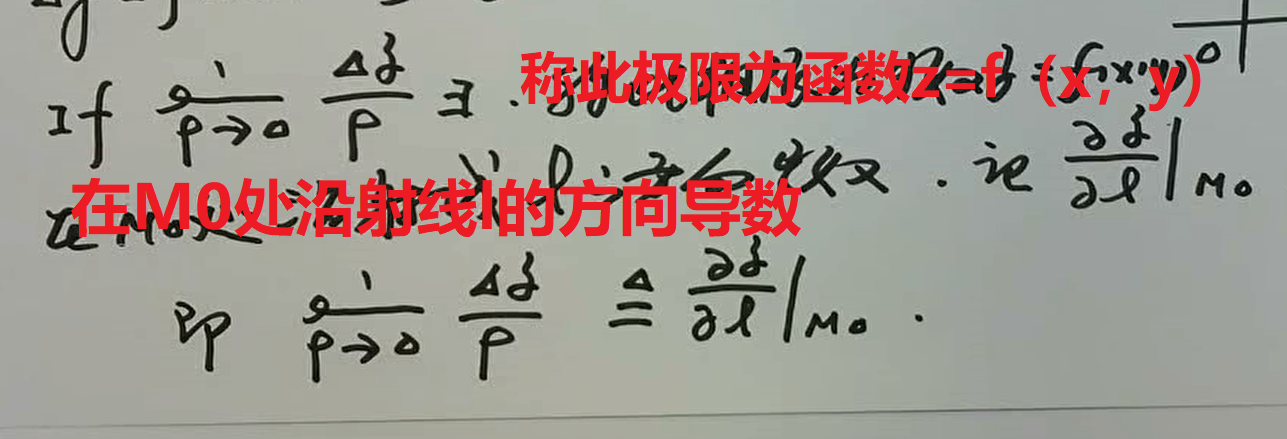 If lim ρ→0 Δz/ρ ∃. 称此极限为函数z=f（x，y）
在M0处沿射线l的方向导数. 记 ∂z/∂l|M0
即 lim ρ→0 Δz/ρ ≜ ∂z/∂l|M0.